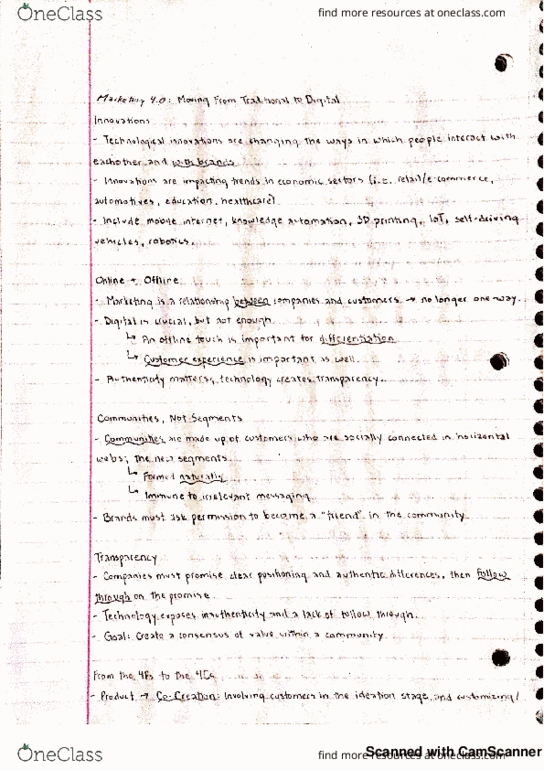 OneClass
find more resources at oneclass.com
Marketing 4.0: Moving From Traditional to Digital
Innovations
- Technological innovations are changing the ways in which people interact with
eachother and with brands.
- Innovations are impacting trends in economic sectors (i.e. retail/e-commerce,
automotives, education, healthcare)
- Include mobile internet, knowledge automation, 3D printing, IoT, self-driving
vehicles, robotics.
Online + Offline
- Marketing is a relationship between companies and customers → no longer one-way.
- Digital is crucial, but not enough.
↳ An offline touch is important for differentiation
↳ Customer experience is important as well.
- Authenticity matters; technology creates transparency.
Communities, Not Segments
- Communities are made up of customers who are socially connected in horizontal
webs; the new segments.
↳ Formed naturally
↳ Immune to irrelevant messaging
- Brands must ask permission to become a "friend" in the community.
Transparency
- Companies must promise clear positioning and authentic differences, then follow
through on the promise.
- Technology exposes inauthenticity and a lack of follow through.
- Goal: Create a consensus of value within a community.
From the 4Ps to the 4Cs
- Product → Co-Creation: Involving customers in the ideation stage, and customizing/
OneClass
find more resources at oneclass.com
Scanned with CamScanner